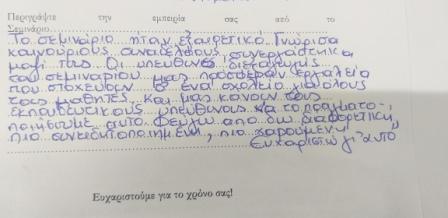 Περιγράψτε την εμπειρία σας από το
Σεμινάριο
Το σεμινάριο ήταν εξαιρετικό. Γνώρισα
καινούριους συναδέλφους, συνεργάστηκα
μαζί τους. Οι υπεύθυνες διεξαγωγής
του σεμιναρίου μας πρόσφεραν εργαλεία
που στοχεύουν σ' ένα σχολείο για όλους
τους μαθητές. Και μας κάνουν τους
εκπαιδευτικούς υπεύθυνους να το πραγματο-
ποιήσουμε αυτό. Φεύγω από δω διαφορετική,
πιο συνειδητοποιημένη, πιο χαρούμενη
Ευχαριστώ γι' αυτό
Ευχαριστούμε για το χρόνο σας!